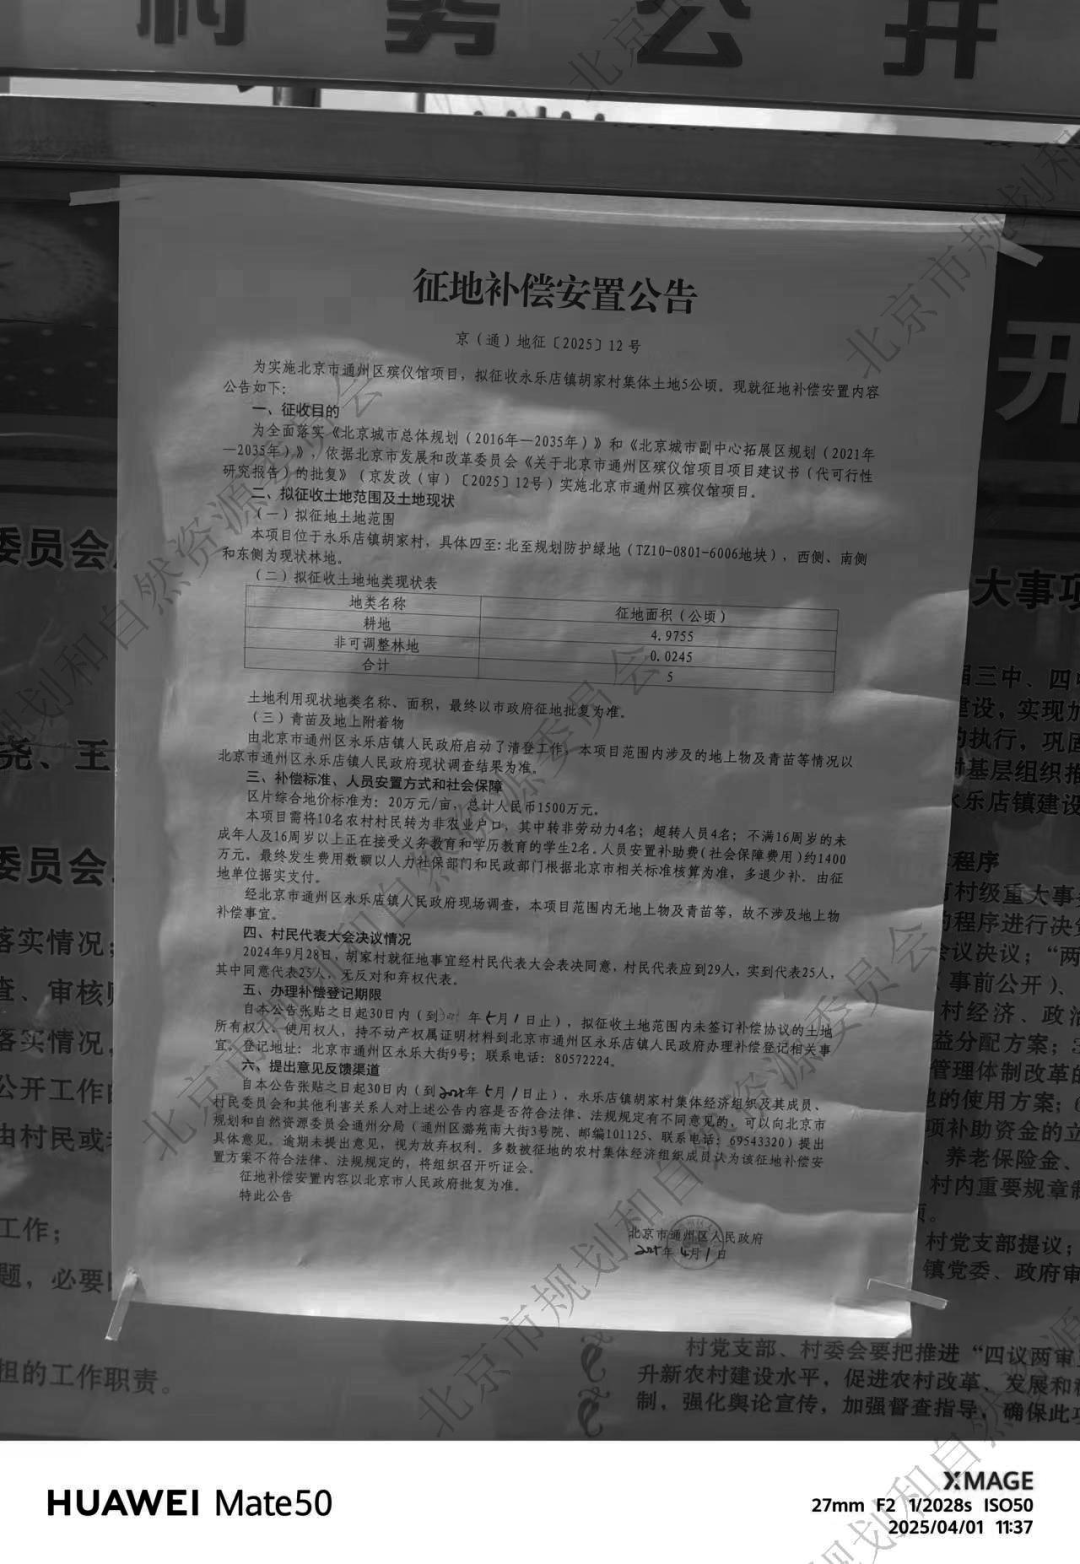 村务公开
征地补偿安置公告
京（通）地征〔2025〕12号
为实施北京市通州区殡仪馆项目，拟征收永乐店镇胡家村集体土地5公顷。现就征地补偿安置内容
公告如下：
一、征收目的
为全面落实《北京城市总体规划（2016年—2035年）》和《北京城市副中心拓展区规划（2021年
—2035年）》，依据北京市发展和改革委员会《关于北京市通州区殡仪馆项目项目建议书（代可行性
研究报告）的批复》（京发改（审）〔2025〕12号）实施北京市通州区殡仪馆项目。
二、拟征收土地范围及土地现状
（一）拟征地土地范围
本项目位于永乐店镇胡家村，具体四至：北至规划防护绿地（TZ10-0801-6006地块），西侧、南侧
和东侧为现状林地。
（二）拟征收土地地类现状表
地类名称 征地面积（公顷）
耕地 4.9755
非可调整林地 0.0245
合计 5
土地利用现状地类名称、面积，最终以市政府征地批复为准。
（三）青苗及地上附着物
由北京市通州区永乐店镇人民政府启动了清登工作，本项目范围内涉及的地上物及青苗等情况以
北京市通州区永乐店镇人民政府现状调查结果为准。
三、补偿标准、人员安置方式和社会保障
区片综合地价标准为：20万元/亩，总计人民币1500万元。
本项目需将10名农村村民转为非农业户口，其中转非劳动力4名；超转人员4名；不满16周岁的未
成年人及16周岁以上正在接受义务教育和学历教育的学生2名。人员安置补助费（社会保障费用）约1400
万元。最终发生费用数额以人力社保部门和民政部门根据北京市相关标准核算为准，多退少补。由征
地单位据实支付。
经北京市通州区永乐店镇人民政府现场调查，本项目范围内无地上物及青苗等，故不涉及地上物
补偿事宜。
四、村民代表大会决议情况
2024年9月28日，胡家村就征地事宜经村民代表大会表决同意，村民代表应到29人，实到代表25人，
其中同意代表25人，无反对和弃权代表。
五、办理补偿登记期限
自本公告张贴之日起30日内（到 年5月1日止），拟征收土地范围内未签订补偿协议的土地
所有权人、使用权人，持不动产权属证明材料到北京市通州区永乐店镇人民政府办理补偿登记相关事
宜。登记地址：北京市通州区永乐大街9号；联系电话：80572224。
六、提出意见反馈渠道
自本公告张贴之日起30日内（到2025年5月1日止），永乐店镇胡家村集体经济组织及其成员、
村民委员会和其他利害关系人对上述公告内容是否符合法律、法规规定有不同意见的，可以向北京市
规划和自然资源委员会通州分局（通州区潞苑南大街3号院、邮编101125、联系电话：69543320）提出
具体意见。逾期未提出意见，视为放弃权利。多数被征地的农村集体经济组织成员认为该征地补偿安
置方案不符合法律、法规规定的，将组织召开听证会。
征地补偿安置内容以北京市人民政府批复为准。
特此公告
北京市通州区人民政府
2025年4月1日
开
委员会
尧、王
委员会
落实情况；
查、审核
落实情况，
公开工作
由村民或
工作；
题，必要
担的工作职责。
大事项
届三中、四中
建设，实现加
的执行，巩固
基层组织推
永乐店镇建设
程序
村级重大事
程序进行决
会议决议；“两
事前公开）、
村经济、政治
益分配方案；3
管理体制改革的
的使用方案；
项补助资金的立
、养老保险金、
村内重要规章制
项。
村党支部提议；
镇党委、政府审
村党支部、村委会要把推进“四议两审
升新农村建设水平，促进农村改革、发展和
制，强化舆论宣传，加强督查指导，确保此项
北京市规划和自然资源委员会
HUAWEI Mate50
XMAGE
27mm F2 1/2028s ISO50
2025/04/01 11:37